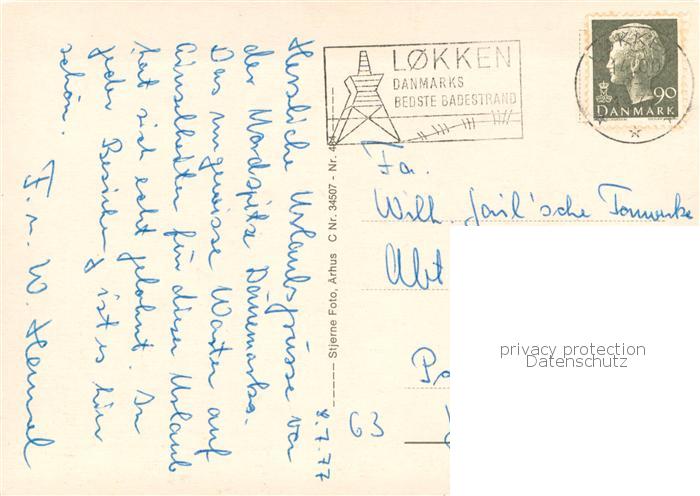 LØKKEN
DANMARKS
BEDSTE BADESTRAND
90
DANMARK
Herzliche Urlaubsgrüsse von
der Nordspitze Dänemarks.
Das ungewisse Warten auf
für dieser Urlaub
hat sich echt gelohnt. In
jeder Beziehung ist es hier
schön.
F. u. W. Hensel
8.7.77
Stjerne Foto, Arhus C Nr. 34507 - Nr. 4
Fa.
Wilh. Gail'sche Tonwerke
Abt
63
privacy protection
Datenschutz